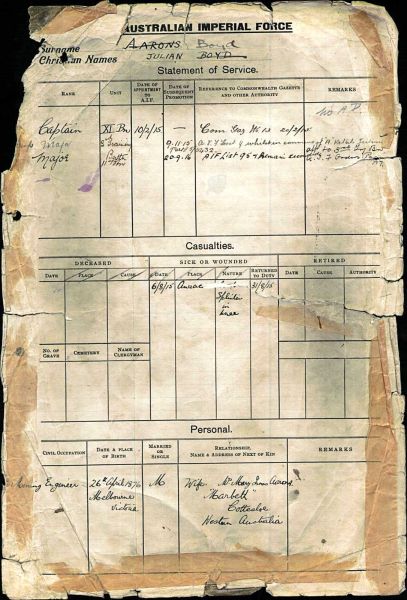 AUSTRALIAN IMPERIAL FORCE
Surname AARONS Boyd
Christian Names JULIAN BOYD
Statement of Service.
RANK UNIT DATE OF APPOINTMENT TO A.I.F. DATE OF SUBSEQUENT PROMOTION REFERENCE TO COMMONWEALTH GAZETTE AND OTHER AUTHORITY REMARKS
No A.D
Captain XI Bn 10/2/15 — Com Gaz No 13 20/2/15
Major 9.11.15
Major 20.9.16 AIF List
Casualties.
DECEASED SICK OR WOUNDED RETIRED
DATE PLACE CAUSE DATE PLACE NATURE RETURNED TO DUTY DATE CAUSE AUTHORITY
6/8/15 Anzac 31/8/15
Splinter
in
knee
NO. OF GRAVE CEMETERY NAME OF CLERGYMAN
Personal.
CIVIL OCCUPATION DATE & PLACE OF BIRTH MARRIED OR SINGLE RELATIONSHIP, NAME & ADDRESS OF NEXT OF KIN REMARKS
Mining Engineer 26th April 1876 M Wife Mrs Mary Aarons
Melbourne "Marbett"
Victoria Cottesloe
Western Australia